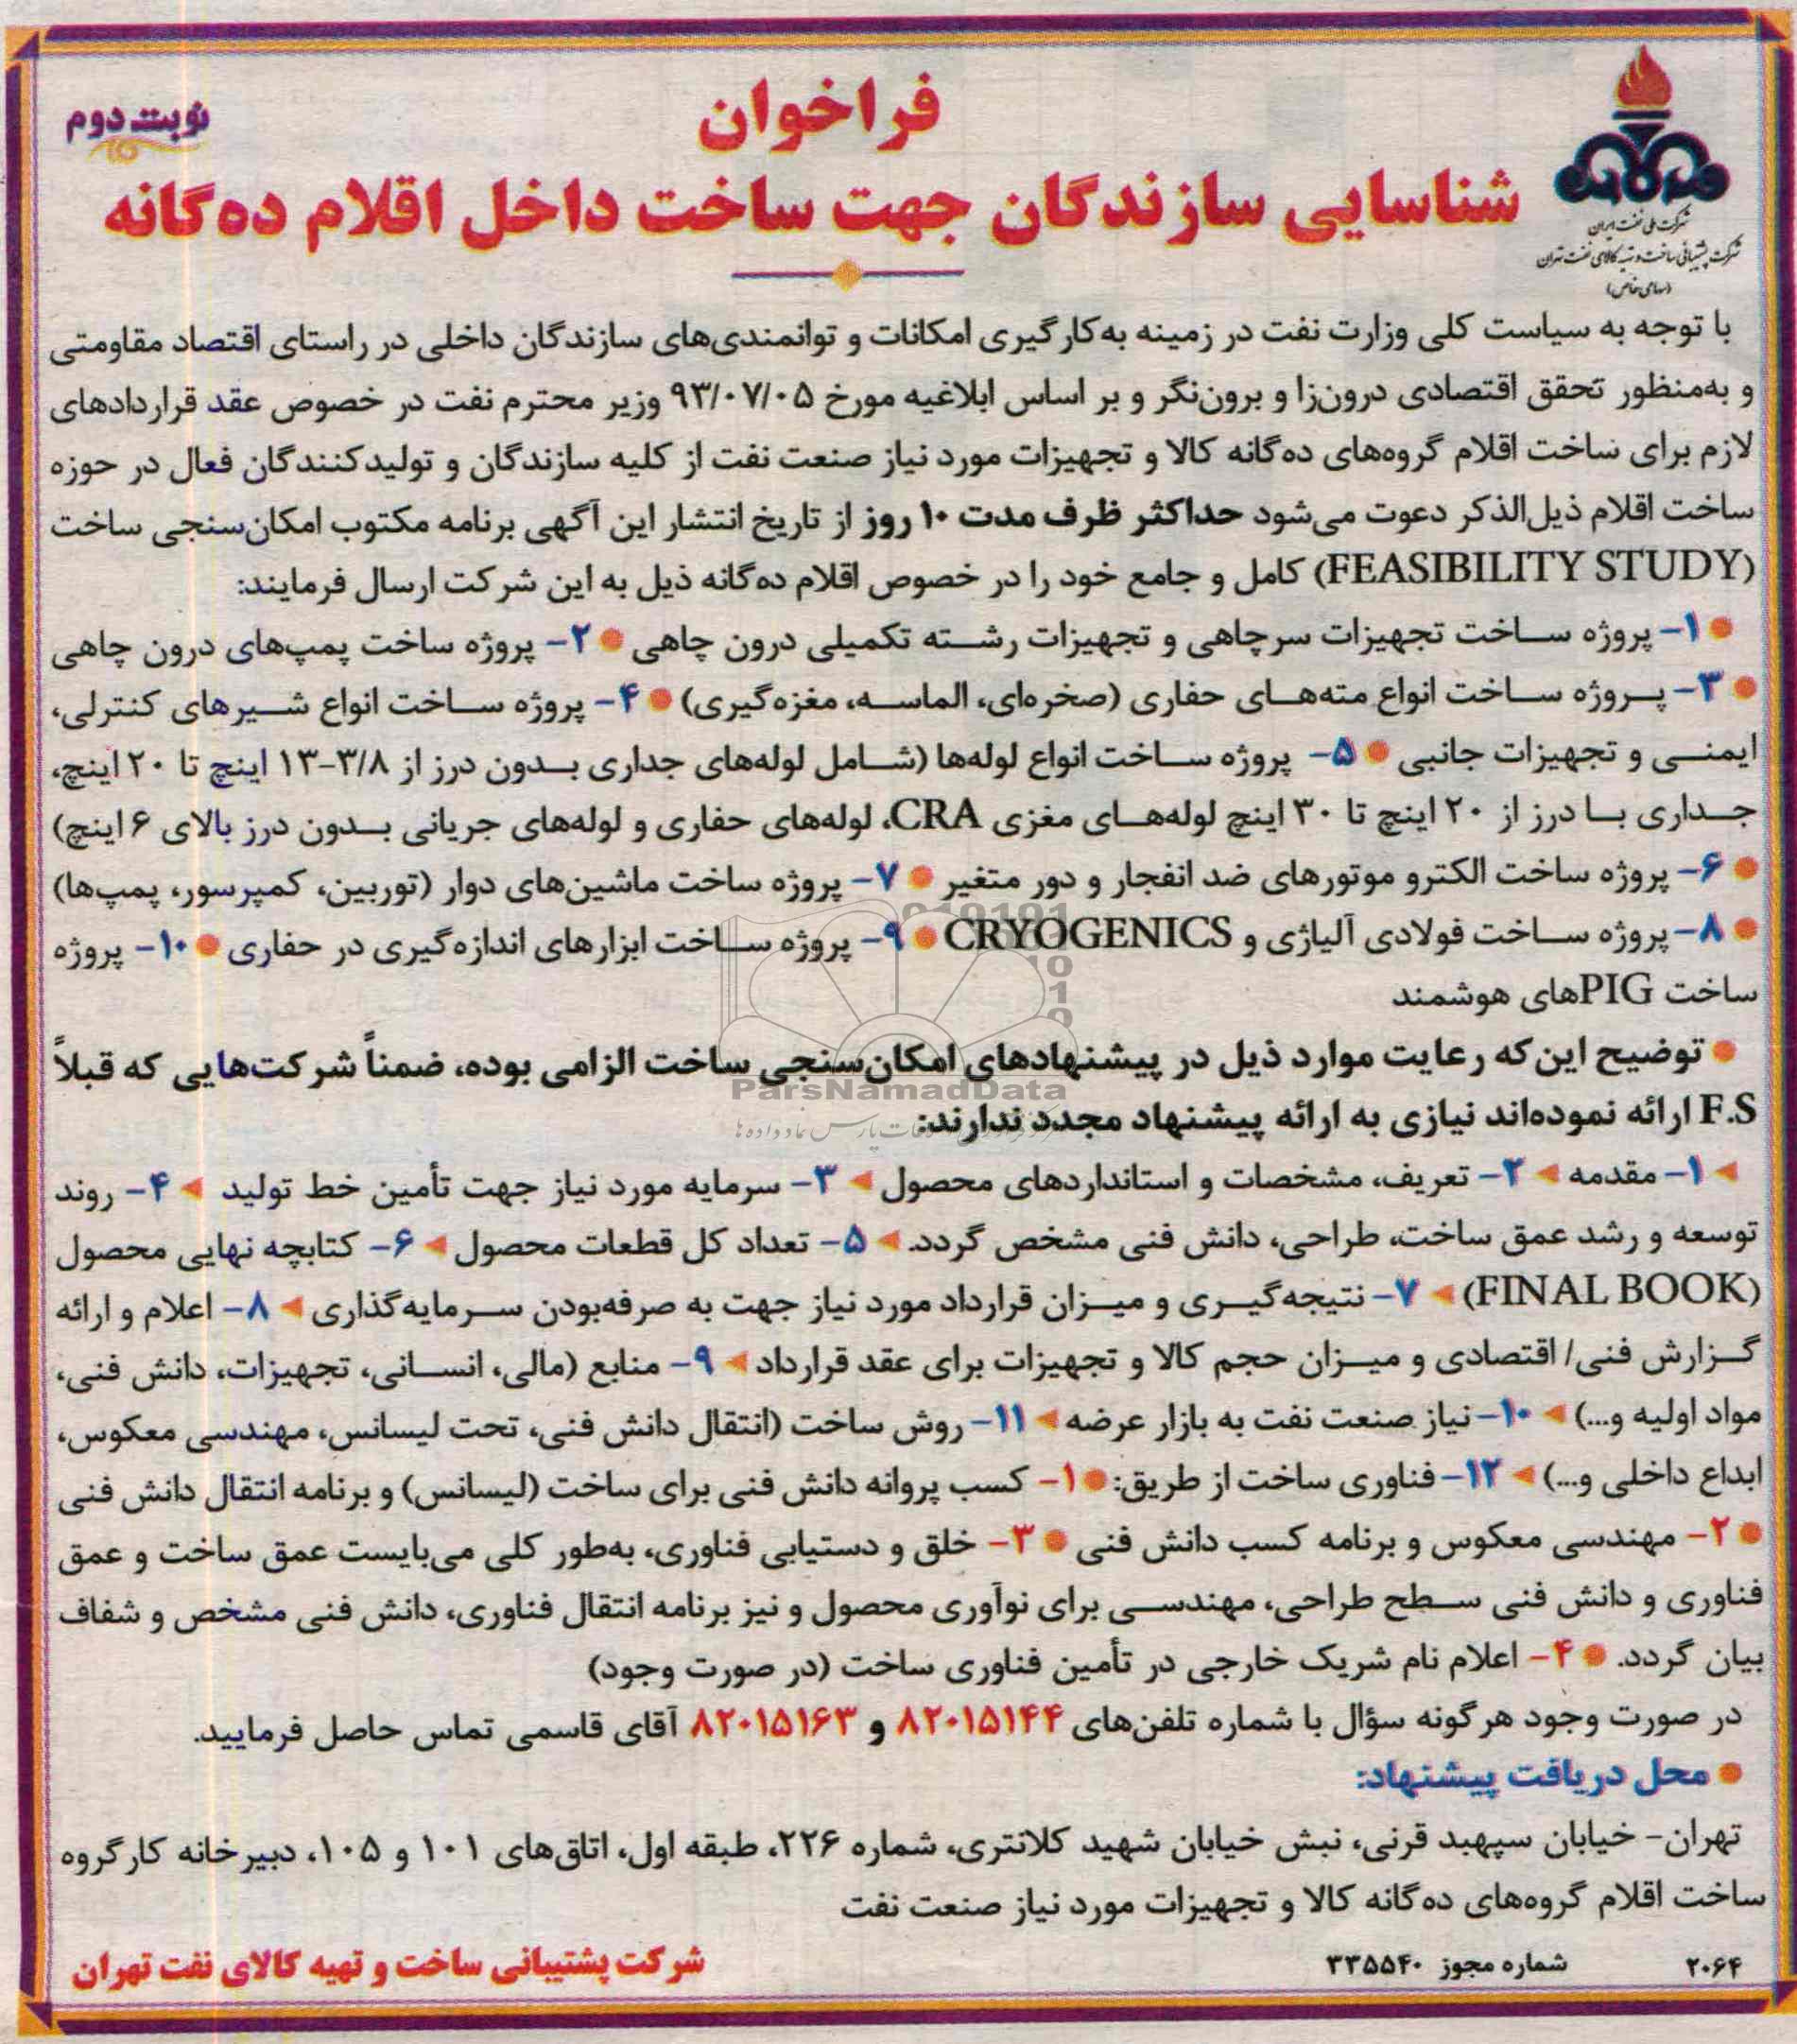 نوبت دوم
فراخوان
شناسایی سازندگان جهت ساخت داخل اقلام ده‌گانه
شرکت ملی نفت ایران
شرکت پشتیبانی ساخت و تهیه کالای نفت تهران
(سهامی خاص)
با توجه به سیاست کلی وزارت نفت در زمینه به‌کارگیری امکانات و توانمندی‌های سازندگان داخلی در راستای اقتصاد مقاومتی
و به‌منظور تحقق اقتصادی درون‌زا و برون‌نگر و بر اساس ابلاغیه مورخ ۹۳/۰۷/۰۵ وزیر محترم نفت در خصوص عقد قراردادهای
لازم برای ساخت اقلام گروه‌های ده‌گانه کالا و تجهیزات مورد نیاز صنعت نفت از کلیه سازندگان و تولیدکنندگان فعال در حوزه
ساخت اقلام ذیل‌الذکر دعوت می‌شود حداکثر ظرف مدت ۱۰ روز از تاریخ انتشار این آگهی برنامه مکتوب امکان‌سنجی ساخت
(FEASIBILITY STUDY) کامل و جامع خود را در خصوص اقلام ده‌گانه ذیل به این شرکت ارسال فرمایند:
● ۱- پروژه ساخت تجهیزات سرچاهی و تجهیزات رشته تکمیلی درون چاهی ● ۲- پروژه ساخت پمپ‌های درون چاهی
● ۳- پروژه ساخت انواع مته‌های حفاری (صخره‌ای، الماسه، مغزه‌گیری) ● ۴- پروژه ساخت انواع شیرهای کنترلی،
ایمنی و تجهیزات جانبی ● ۵- پروژه ساخت انواع لوله‌ها (شامل لوله‌های جداری بدون درز از ۳/۸-۱۳ اینچ تا ۲۰ اینچ،
جداری با درز از ۲۰ اینچ تا ۳۰ اینچ لوله‌های مغزی CRA، لوله‌های حفاری و لوله‌های جریانی بدون درز بالای ۶ اینچ)
● ۶- پروژه ساخت الکترو موتورهای ضد انفجار و دور متغیر ● ۷- پروژه ساخت ماشین‌های دوار (توربین، کمپرسور، پمپ‌ها)
● ۸- پروژه ساخت فولادی آلیاژی و CRYOGENICS ● ۹- پروژه ساخت ابزارهای اندازه‌گیری در حفاری ● ۱۰- پروژه
ساخت PIGهای هوشمند
● توضیح این‌که رعایت موارد ذیل در پیشنهادهای امکان‌سنجی ساخت الزامی بوده، ضمناً شرکت‌هایی که قبلاً
ParsNamadData
F.S ارائه نموده‌اند نیازی به ارائه پیشنهاد مجدد ندارند:
◄ ۱- مقدمه ◄ ۲- تعریف، مشخصات و استانداردهای محصول ◄ ۳- سرمایه مورد نیاز جهت تأمین خط تولید ◄ ۴- روند
توسعه و رشد عمق ساخت، طراحی، دانش فنی مشخص گردد. ◄ ۵- تعداد کل قطعات محصول ◄ ۶- کتابچه نهایی محصول
(FINAL BOOK) ◄ ۷- نتیجه‌گیری و میزان قرارداد مورد نیاز جهت به صرفه‌بودن سرمایه‌گذاری ◄ ۸- اعلام و ارائه
گزارش فنی/ اقتصادی و میزان حجم کالا و تجهیزات برای عقد قرارداد ◄ ۹- منابع (مالی، انسانی، تجهیزات، دانش فنی،
مواد اولیه و...) ◄ ۱۰- نیاز صنعت نفت به بازار عرضه ◄ ۱۱- روش ساخت (انتقال دانش فنی، تحت لیسانس، مهندسی معکوس،
ابداع داخلی و...) ◄ ۱۲- فناوری ساخت از طریق: ● ۱- کسب پروانه دانش فنی برای ساخت (لیسانس) و برنامه انتقال دانش فنی
● ۲- مهندسی معکوس و برنامه کسب دانش فنی ● ۳- خلق و دستیابی فناوری، به‌طور کلی می‌بایست عمق ساخت و عمق
فناوری و دانش فنی سطح طراحی، مهندسی برای نوآوری محصول و نیز برنامه انتقال فناوری، دانش فنی مشخص و شفاف
بیان گردد. ● ۴- اعلام نام شریک خارجی در تأمین فناوری ساخت (در صورت وجود)
در صورت وجود هرگونه سؤال با شماره تلفن‌های ۸۲۰۱۵۱۴۴ و ۸۲۰۱۵۱۶۳ آقای قاسمی تماس حاصل فرمایید.
● محل دریافت پیشنهاد:
تهران- خیابان سپهبد قرنی، نبش خیابان شهید کلانتری، شماره ۲۲۶، طبقه اول، اتاق‌های ۱۰۱ و ۱۰۵، دبیرخانه کارگروه
ساخت اقلام گروه‌های ده‌گانه کالا و تجهیزات مورد نیاز صنعت نفت
۲۰۶۴ شماره مجوز ۳۳۵۵۴۰ شرکت پشتیبانی ساخت و تهیه کالای نفت تهران